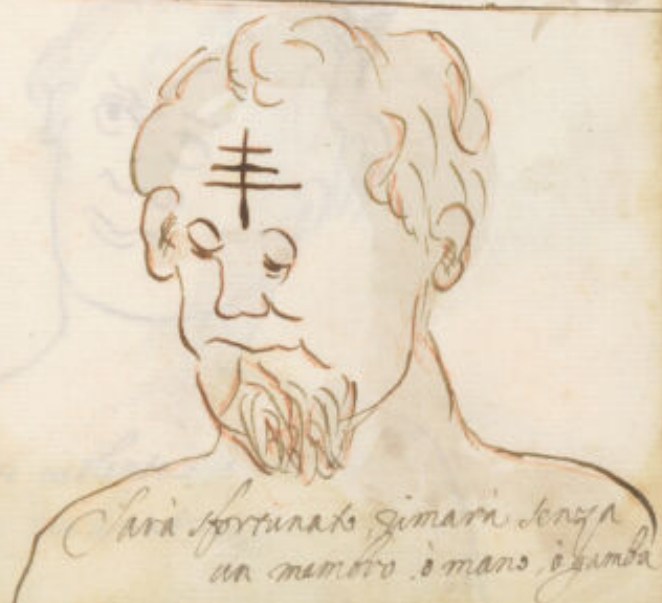 Sarà sfortunato, rimarà senza
un membro, ò mano, ò gamba